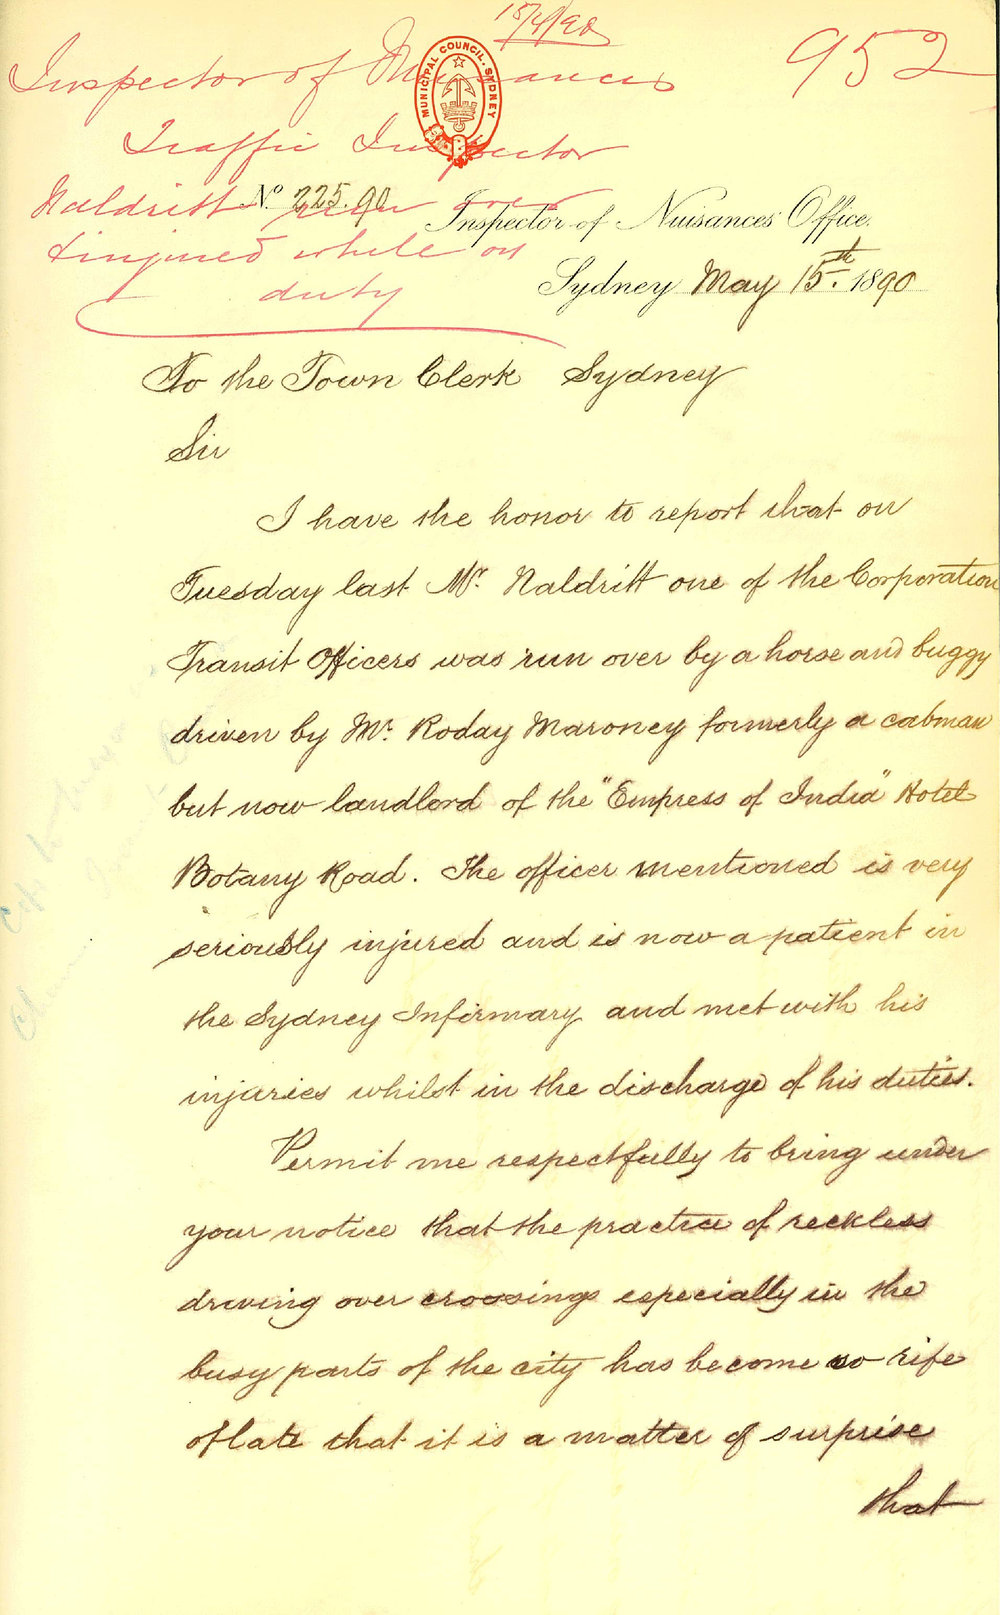 952
Inspector of Nuisances
MUNICIPAL COUNCIL. SYDNEY
Traffic Inspector
Naldritt run over
& injured while on
duty
No 225.90
Inspector of Nuisances' Office.
Sydney May 15th 1890
To the Town Clerk Sydney
Sir
I have the honor to report that on
Tuesday last Mr. Naldritt one of the Corporation
Transit Officers was run over by a horse and buggy
driven by Mr. Roday Maroney formerly a cabman
but now landlord of the "Empress of India" Hotel
Botany Road. The officer mentioned is very
seriously injured and is now a patient in
the Sydney Infirmary and met with his
injuries whilst in the discharge of his duties.
Permit me respectfully to bring under
your notice that the practice of reckless
driving over crossings especially in the
busy parts of the city has become so rife
of late that it is a matter of surprise
that